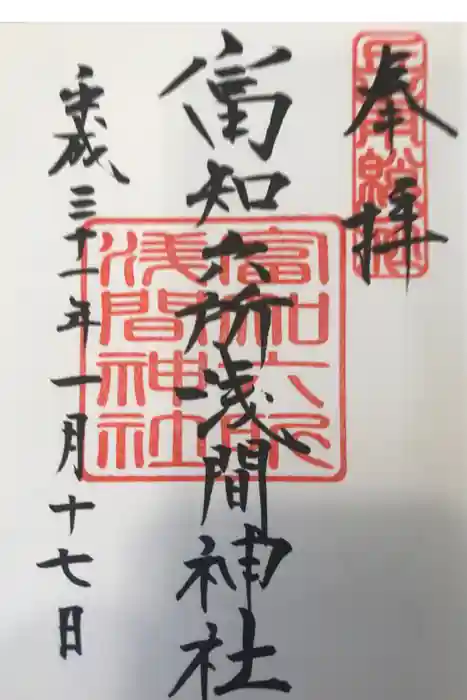 奉拝
富知六所浅間神社
平成三十一年一月十七日
富知六所
浅間神社